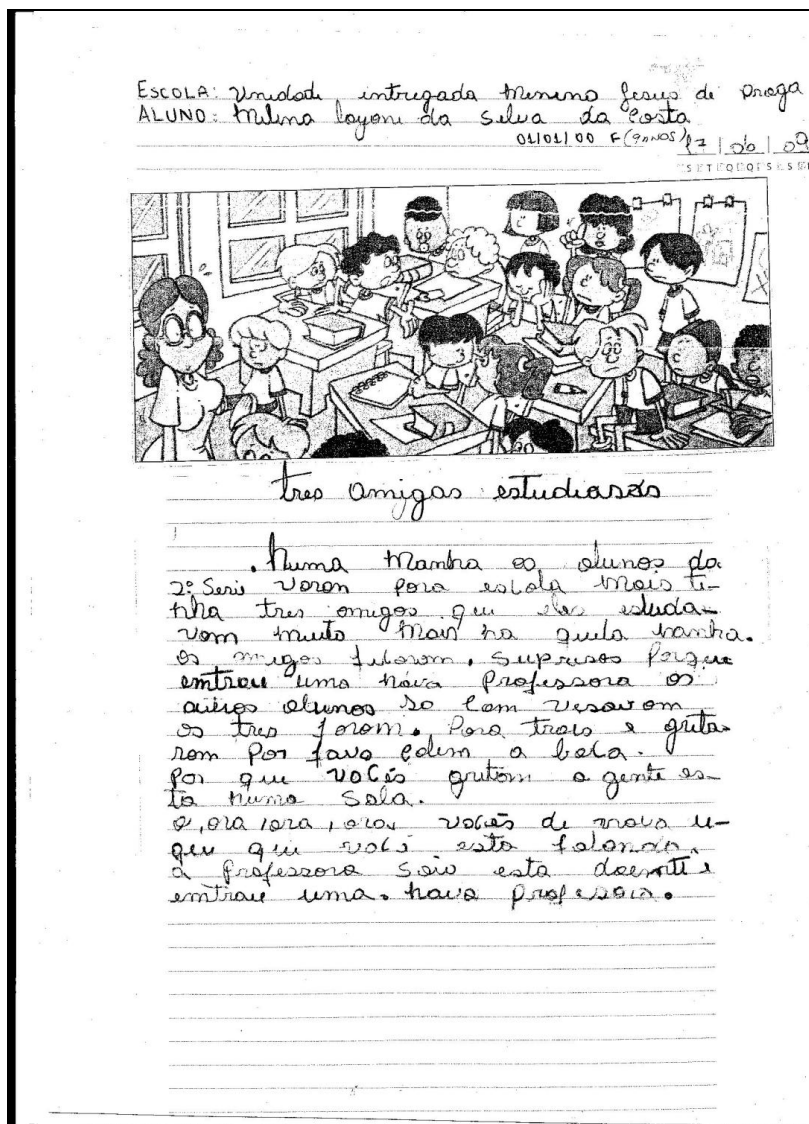 ESCOLA: Unidade intregada Menino Jesus de Praga
ALUNO: Milena layone da Silva da Costa
01/01/00 F (9 ANOS) 17/06/09
S T Q Q S S
tres amigas estudiasas
. Numa Manha os alunos da
2º Serie voron para escola Mais ti-
nha tres amigos que eles estuda-
vom muito Mais na quela manha.
os migos ficarom. Suprisos porque
entrou uma nova Professora os
outros alunos so com vesavom
os tres forom. Para trais e grita-
rom Por favo a bola.
por que vocês gritom a gente es-
ta numa Sala.
o, ora, ora, ora, vocês de novo u-
que que você esta falando.
a Professora Saiu esta doente e
entrou uma. nova professora.